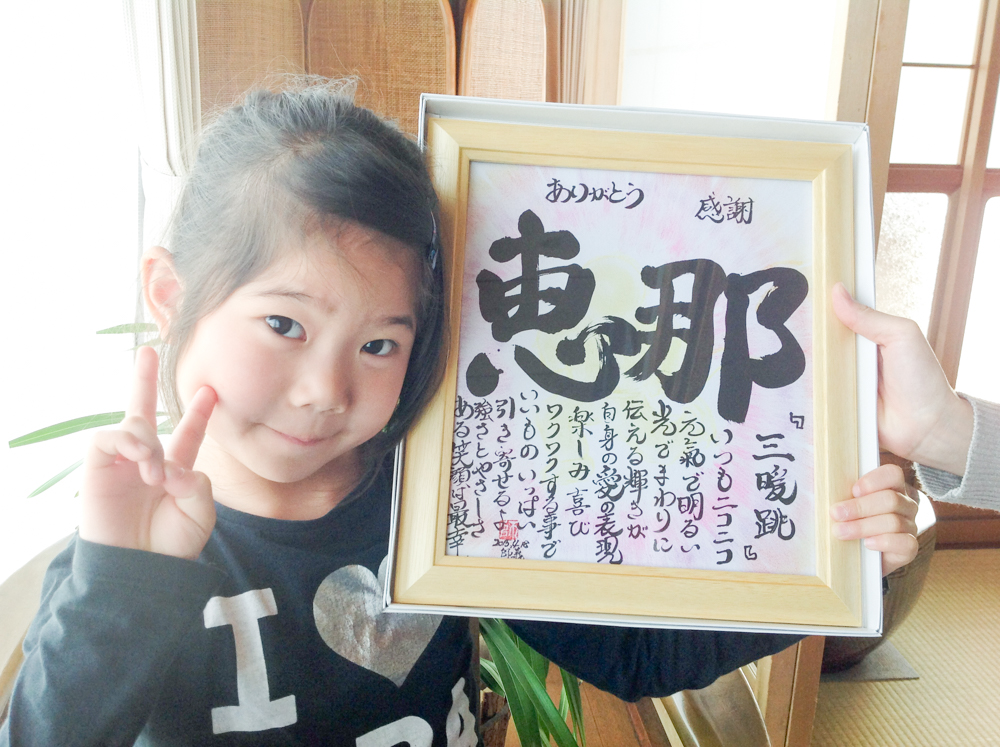 ありがとう 感謝
恵那
『三暖跳』
いつもニコニコ
元氣で明るい
光でまわりに
伝える輝きが
自身の愛の表現
楽しみ 喜び
ワクワクする事で
いいもの いっぱい
引き寄せるよ
強さとやさしさ
ある笑顔は最幸
I